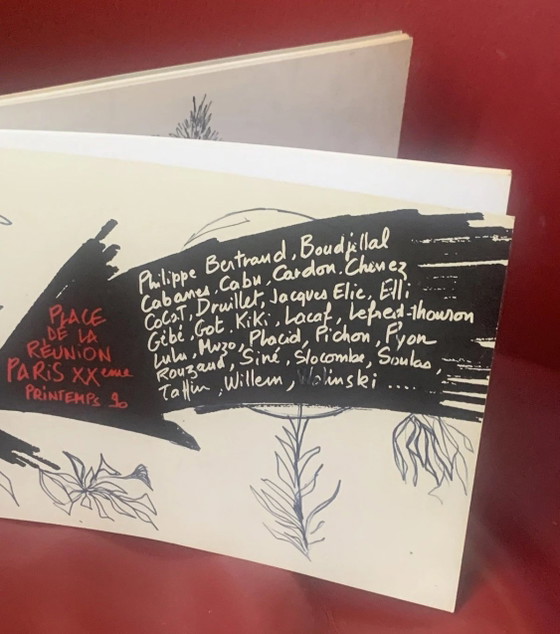 PLACE
DE LA
RÉUNION
PARIS XXeme
PRINTEMPS 90
Philippe Bertrand, Boudjellal
Cabanes, Cabu, Cardon. Chenez
CoCoT, Druillet, Jacques Elie, Elli
Gébé, Got, KiKi, Lacaf, Lefred-Thouron
Lulu, Muzo, Placid, Pichon, Pyon
Rouzaud, Siné, Slocombe, Soulas,
Taffin, Willem, Wolinski ....